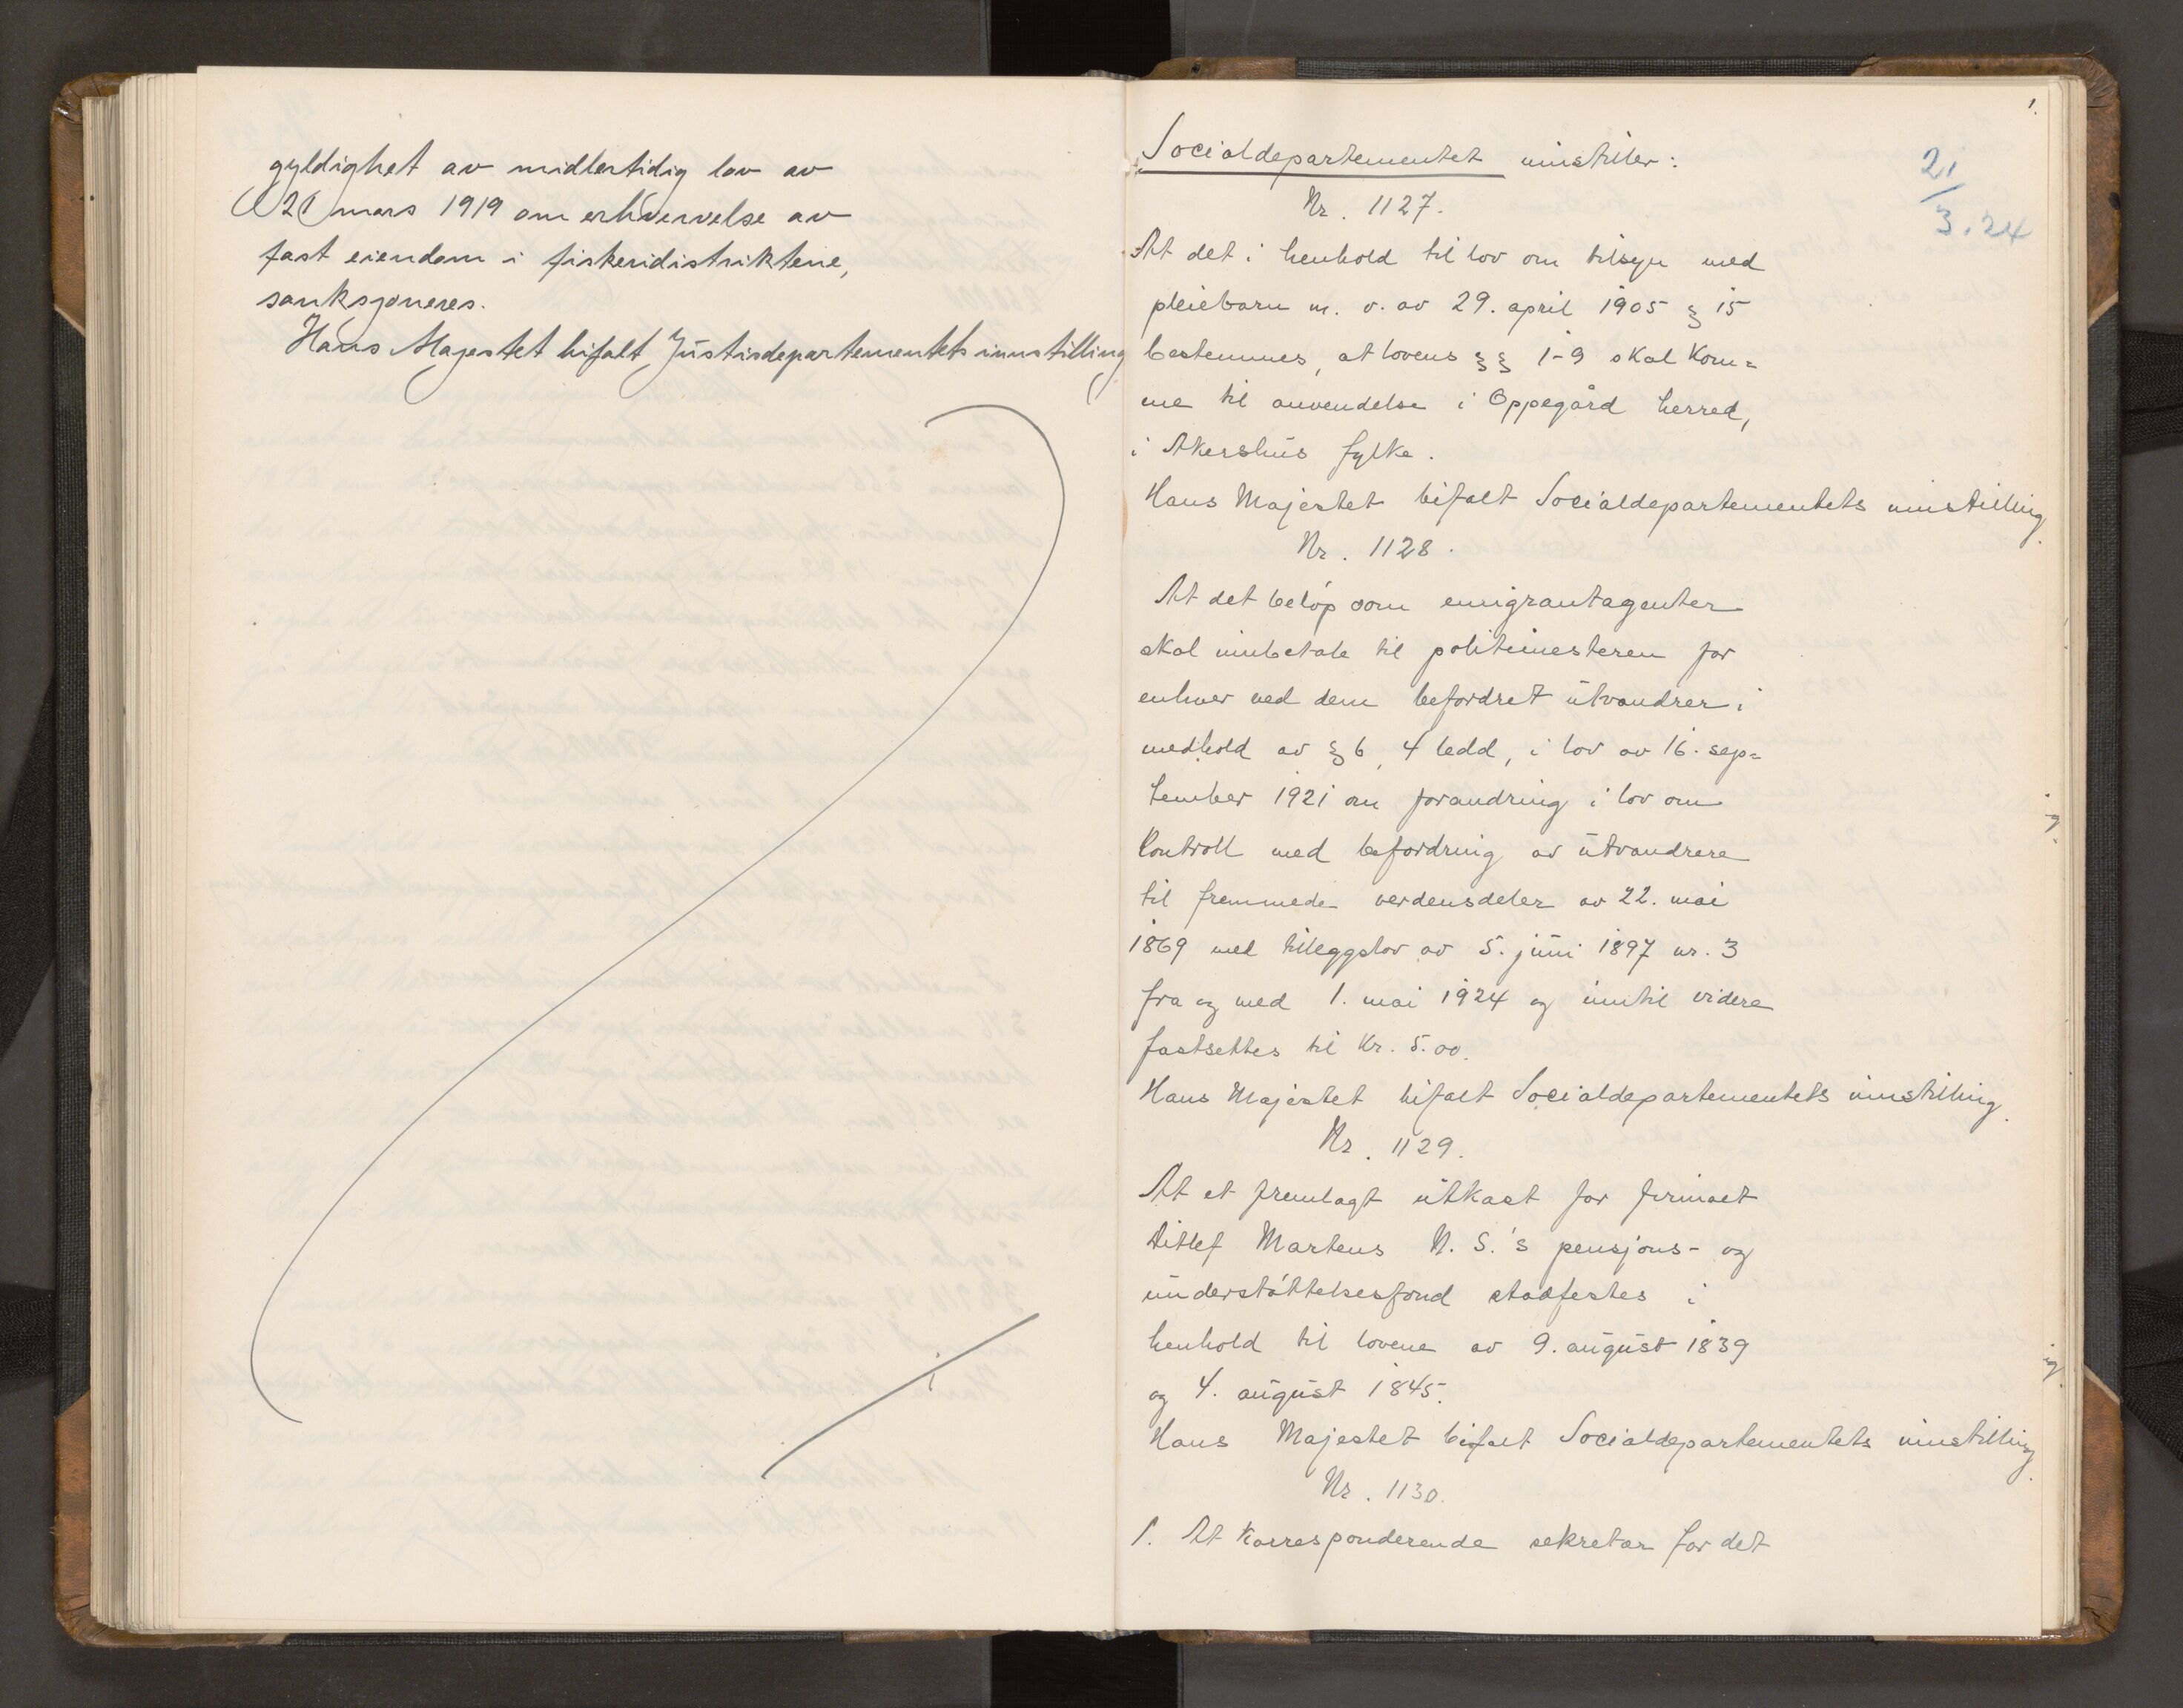 gyldighet av midlertidig lov av
21 mars 1919 om erhvervelse av
fast eiendom i fiskeridistriktene,
sanksjoneres.
Hans Majestet bifalt Justisdepartementets innstilling
1.
21/3.24
Socialdepartementet innstiller:
Nr. 1127.
At det i henhold til lov om tilsyn med
pleiebarn m. v. av 29. april 1905 § 15
bestemmes, at lovens §§ 1-9 skal kom=
me til anvendelse i Oppegård herred,
i Akershus fylke.
Hans Majestet bifalt Socialdepartementets innstilling.
Nr. 1128.
At det beløp som emigrantagenter
skal innbetale til politimesteren for
enhver ved dem befordret utvandrer i
medhold av § 6, 4 ledd, i lov av 16. sep=
tember 1921 om forandring i lov om
kontroll med befordring av utvandrere
til fremmede verdensdeler av 22. mai
1869 med tilleggslov av 5. juni 1897 nr. 3
fra og med 1. mai 1924 og inntil videre
fastsettes til kr. 5.00.
Hans Majestet bifalt Socialdepartementets innstilling.
Nr. 1129.
At et fremlagt utkast for firmaet
Ditlef Martens A. S.'s pensjons- og
understøttelsesfond stadfestes i
henhold til lovene av 9. august 1839
og 4. august 1845.
Hans Majestet bifalt Socialdepartementets innstilling.
Nr. 1130.
1. At korresponderende sekretær for det